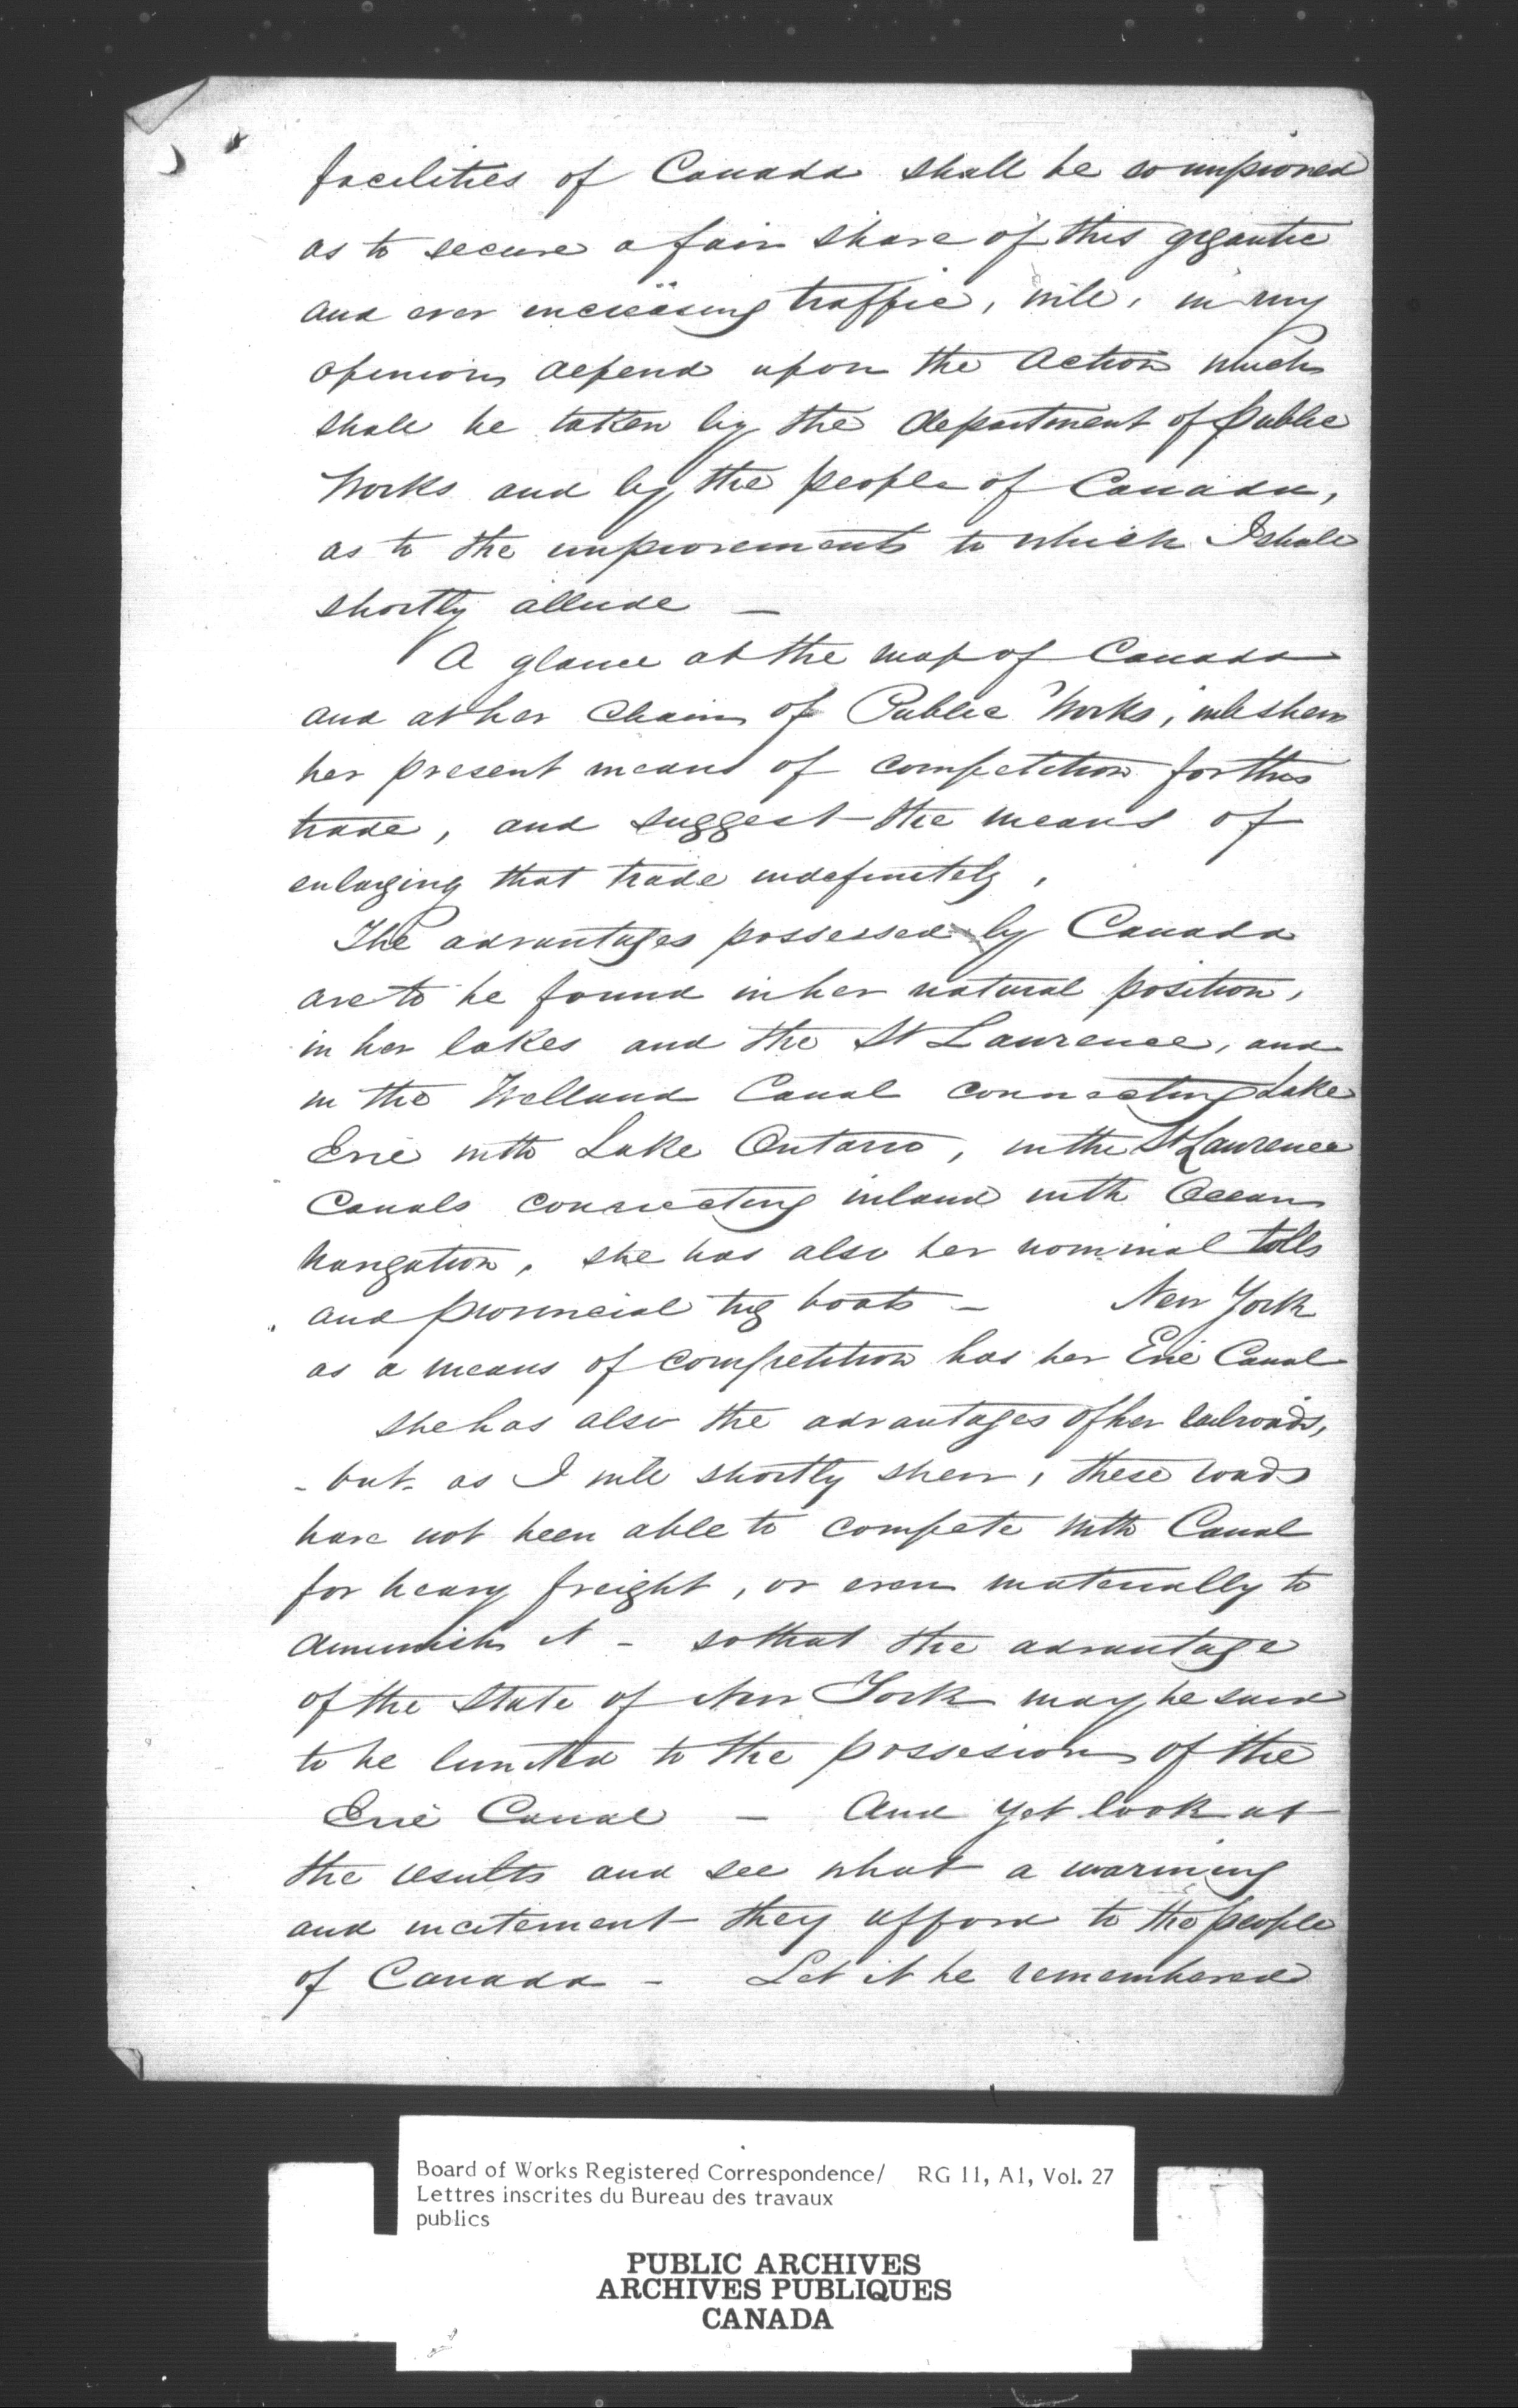 facilities of Canada shall be so improved
as to secure a fair share of this gigantic
and ever increasing traffic, will, in my
opinion depend upon the Action which
shall be taken by the department of Public
Works and by the people of Canada,
as to the improvements to which I shall
shortly allude —
A glance at the map of Canada
and at her Chain of Public Works, will shew
her present means of competition for this
trade, and suggest the means of
enlarging that trade indefinitely,
The advantages possessed by Canada
are to be found in her natural position,
in her lakes and the St Lawrence, and
in the Welland Canal connecting Lake
Erie with Lake Ontario, in the St Lawrence
Canals connecting inland with Ocean
Navigation, she has also her nominal tolls
and provincial tug boats — New York
as a means of competition has her Erie Canal
she has also the advantages of her railroads,
- but as I will shortly shew, these roads
have not been able to compete with Canal
for heavy freight, or even materially to
diminish it - so that the advantage
of the State of New York may be said
to be limited to the possesion of the
Erie Canal — And yet look at
the results and see what a warning
and incitement they afford to the people
of Canada - Let it be remembered
Board of Works Registered Correspondence/ RG 11, A1, Vol. 27
Lettres inscrites du Bureau des travaux
publics
PUBLIC ARCHIVES
ARCHIVES PUBLIQUES
CANADA